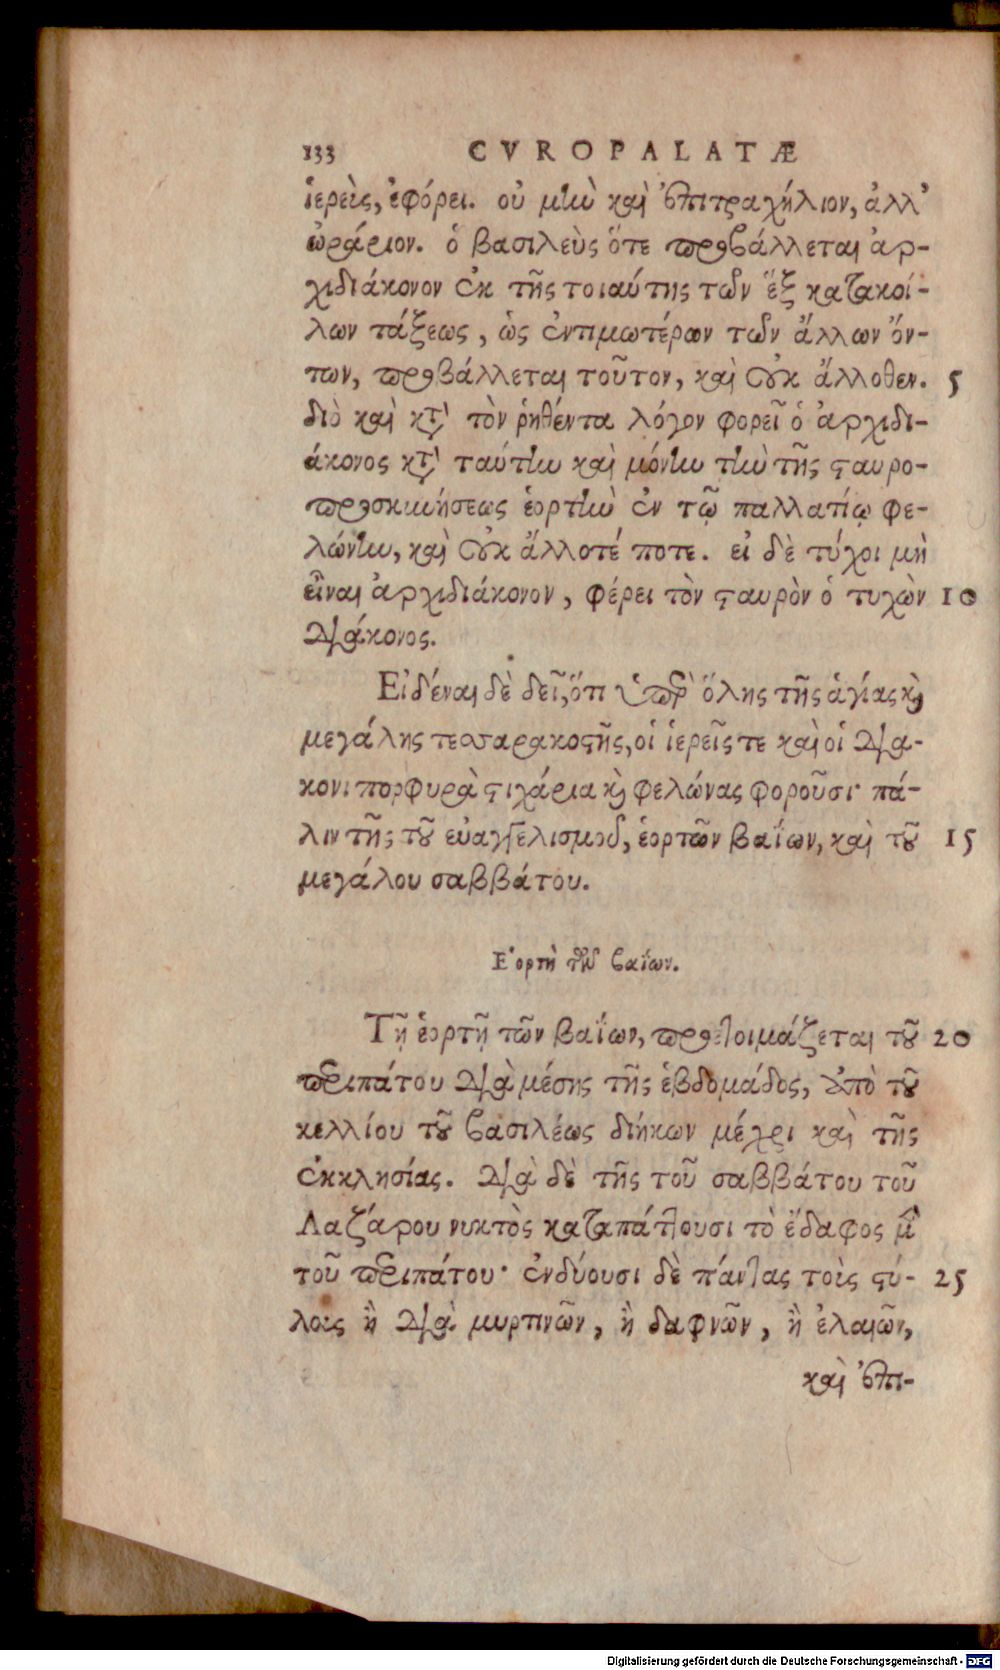 133 CVROPALATÆ
ἱερεὺς, ἐφόρει. οὐ μὴν καὶ ἐπιτραχήλιον, ἀλλ'
ὠράριον. ὁ βασιλεὺς ὅτε προβάλλεται ἀρ-
χιδιάκονον ἐκ τῆς τοιαύτης τῶν ἓξ κατακοί-
λων τάξεως, ὡς ἐντιμωτέρων τῶν ἄλλων ὄν-
των, προβάλλεται τοῦτον, καὶ οὐκ ἄλλοθεν. 5
διὸ καὶ κτ̀ τὸν ῥηθέντα λόγον φορεῖ ὁ ἀρχιδι-
άκονος κτ̀ ταύτην καὶ μόνην τὴν τῆς σταυρο-
προσκυνήσεως ἑορτὴν ἐν τῷ παλλατίῳ φε-
λώνην, καὶ οὐκ ἄλλοτέ ποτε. εἰ δὲ τύχοι μὴ
εἶναι ἀρχιδιάκονον, φέρει τὸν σταυρὸν ὁ τυχὼν 10
διάκονος.
Εἰδέναι δὲ δεῖ, ὅτι ὑπὲρ ὅλης τῆς ἁγίας καὶ
μεγάλης τεσσαρακοστῆς, οἱ ἱερεῖς τε καὶ οἱ διά-
κονι πορφυρὰ στιχάρια καὶ φελώνας φοροῦσι· πά-
λιν τῆς τοῦ εὐαγγελισμοῦ, ἑορτῶν βαΐων, καὶ τοῦ 15
μεγάλου σαββάτου.
Ἑορτὴ τῶν βαΐων.
Τῇ ἑορτῇ τῶν βαΐων, προετοιμάζεται τοῦ 20
περιπάτου διὰ μέσης τῆς ἑβδομάδος, ἀπὸ τοῦ
κελλίου τοῦ βασιλέως διήκων μέχρι καὶ τῆς
ἐκκλησίας. διὰ δὲ τῆς τοῦ σαββάτου τοῦ
Λαζάρου νυκτὸς καταπάττουσι τὸ ἔδαφος μ̂
τοῦ περιπάτου· ἐνδύουσι δὲ πάντας τοὺς στύ- 25
λοις ἢ διὰ μυρτινῶν, ἢ δαφνῶν, ἢ ἐλαιῶν,
καὶ ἐπι-
Digitalisierung gefördert durch die Deutsche Forschungsgemeinschaft - DFG